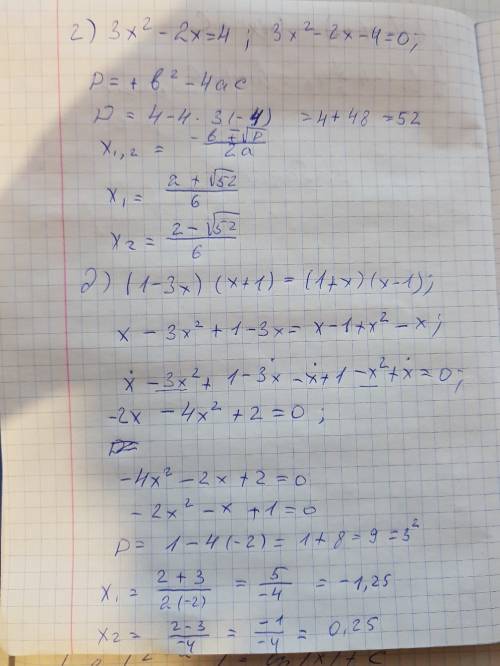 г) 3x² - 2x = 4 ; 3x² - 2x - 4 = 0 ;
D = + b² - 4ac
D = 4 - 4 · 3 (-4) = 4 + 48 = 52
x₁,₂ = (-b ± √D) / 2a
x₁ = (2 + √52) / 6
x₂ = (2 - √52) / 6
д) (1 - 3x) (x + 1) = (1 + x) (x - 1) ;
x - 3x² + 1 - 3x = x - 1 + x² - x ;
x - 3x² + 1 - 3x - x + 1 - x² + x = 0 ;
-2x - 4x² + 2 = 0 ;
-4x² - 2x + 2 = 0
-2x² - x + 1 = 0
D = 1 - 4 (-2) = 1 + 8 = 9 = 3²
x₁ = (2 + 3) / (2 (-2)) = 5 / -4 = -1,25
x₂ = (2 - 3) / -4 = -1 / -4 = 0,25